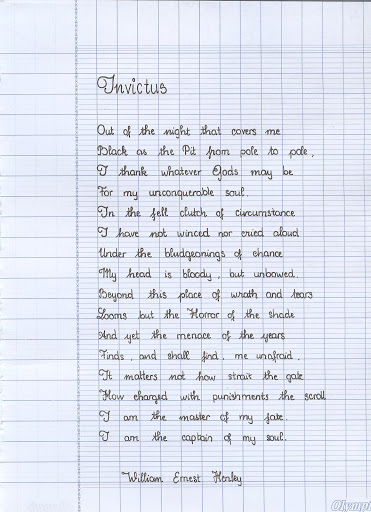 Invictus
Out of the night that covers me
Black as the Pit from pole to pole,
I thank whatever Gods may be
For my unconquerable soul.
In the fell clutch of circumstance
I have not winced nor cried aloud
Under the bludgeonings of chance
My head is bloody, but unbowed.
Beyond this place of wrath and tears
Looms but the Horror of the shade
And yet the menace of the years
Finds, and shall find, me unafraid.
It matters not how strait the gate
How charged with punishments the scroll
I am the master of my fate.
I am the captain of my soul.
William Ernest Henley